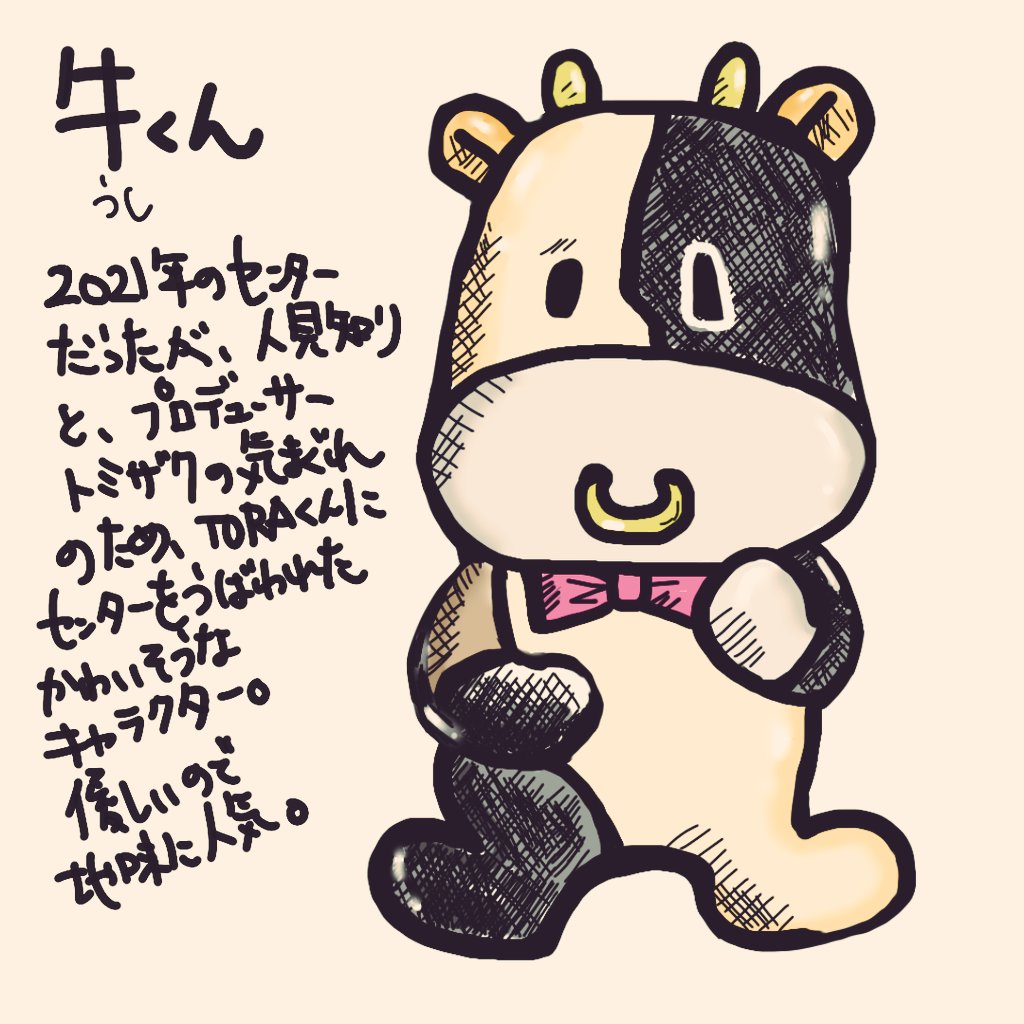 牛くん
うし
2021年のセンター
だったが、人見知り
と、プロデューサー
トミザワの気まぐれ
のため、TORAくんに
センターをうばわれた
かわいそうな
キャラクター。
優しいので
地味に人気。